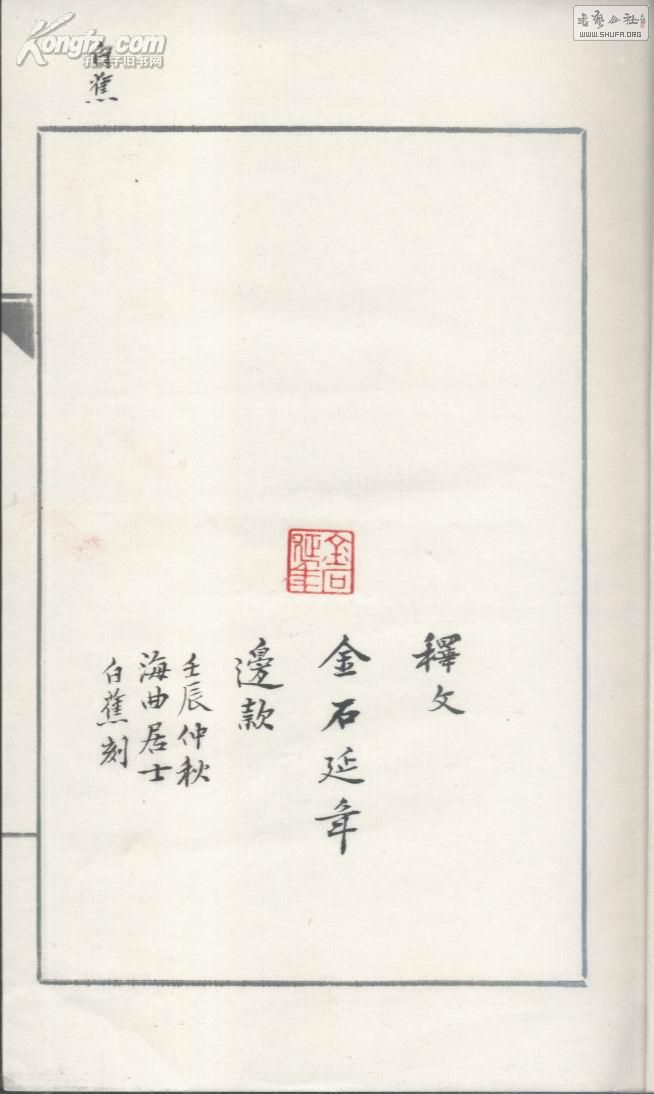 釋文
金石延年
邊款
壬辰仲秋
海曲居士
白蕉刻
金石延年
白蕉
Kongfz.com
孔夫子旧书网
书艺公社
WWW.SHUFA.ORG